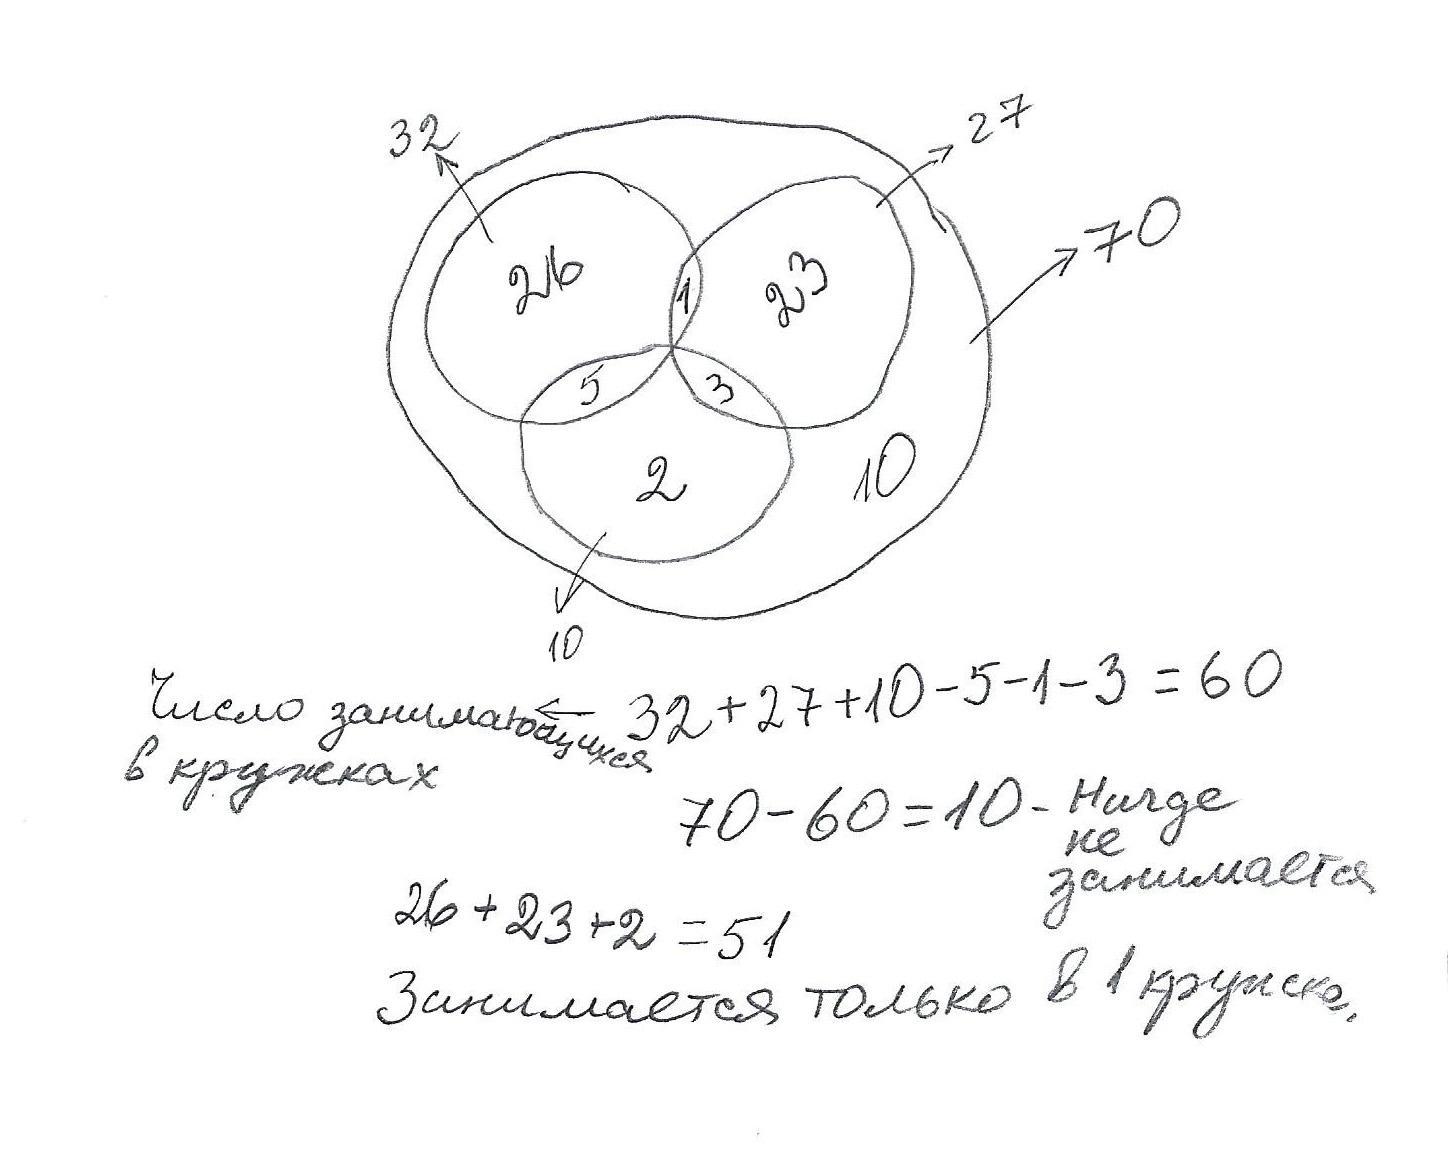 32
27
70
26
1
23
5
3
2
10
10
32+27+10-5-1-3=60
Число занимающихся
в кружках
70-60=10- Нигде
не
занимается
26+23+2=51
Занимается только в 1 кружке.